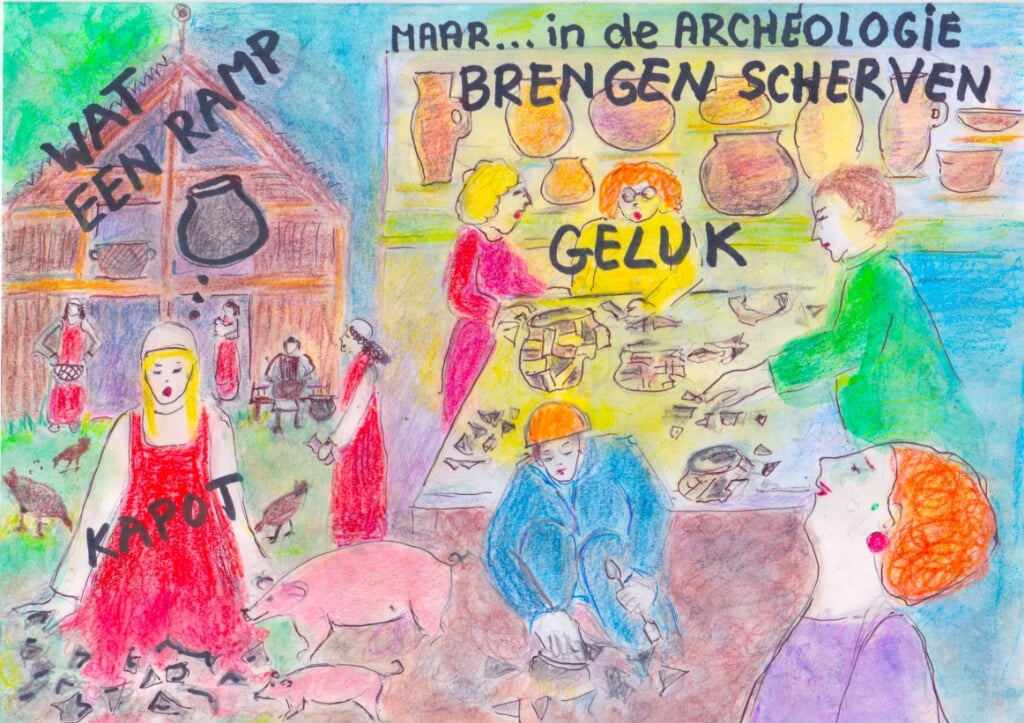 WAT
EEN RAMP
KAPOT
MAAR... in de ARCHEOLOGIE
BRENGEN SCHERVEN
GELUK